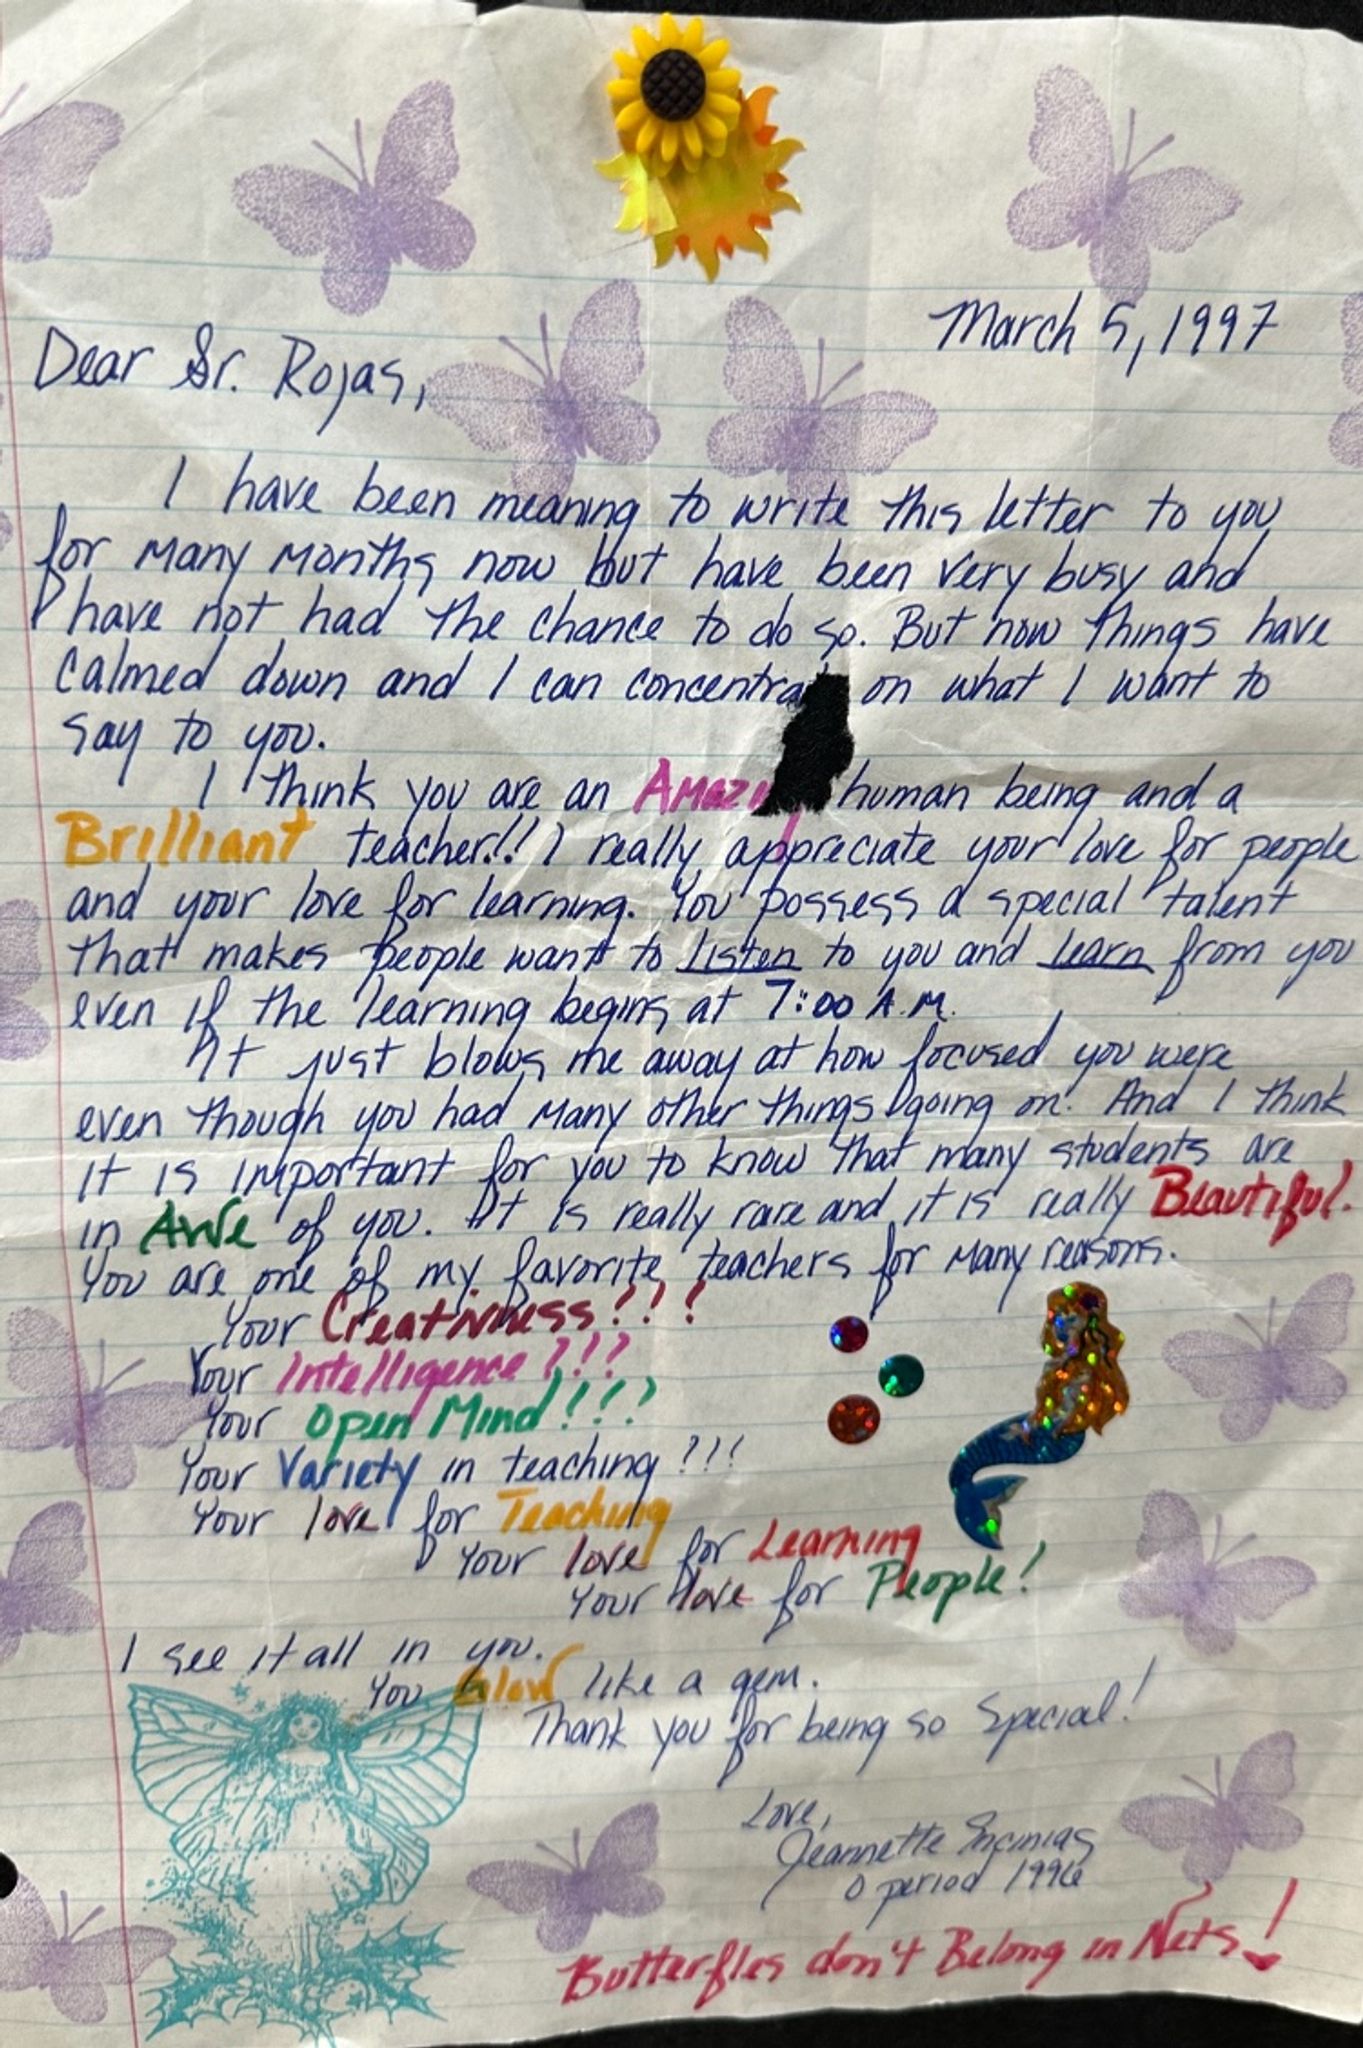 March 5, 1997
Dear Sr. Rojas,
I have been meaning to write this letter to you
for many months now but have been very busy and
have not had the chance to do so. But now things have
calmed down and I can concentra on what I want to
say to you.
I think you are an Amazi human being and a
Brilliant teacher!! I really appreciate your love for people
and your love for learning. You possess a special talent
that makes people want to listen to you and learn from you
even if the learning begins at 7:00 A.M.
It just blows me away at how focused you were
even though you had many other things going on. And I think
it is important for you to know that many students are
in Awe of you. It is really rare and it is really Beautiful.
You are one of my favorite teachers for many reasons.
Your Creativiness!!!
Your Intelligence!!!
Your Open Mind!!!
Your Variety in teaching!!!
Your love for Teaching
Your love for Learning
Your love for People!
I see it all in you.
You Glow like a gem.
Thank you for being so Special!
Love,
Jeannette
0 period 1996
Butterfles don't Belong in Nets!